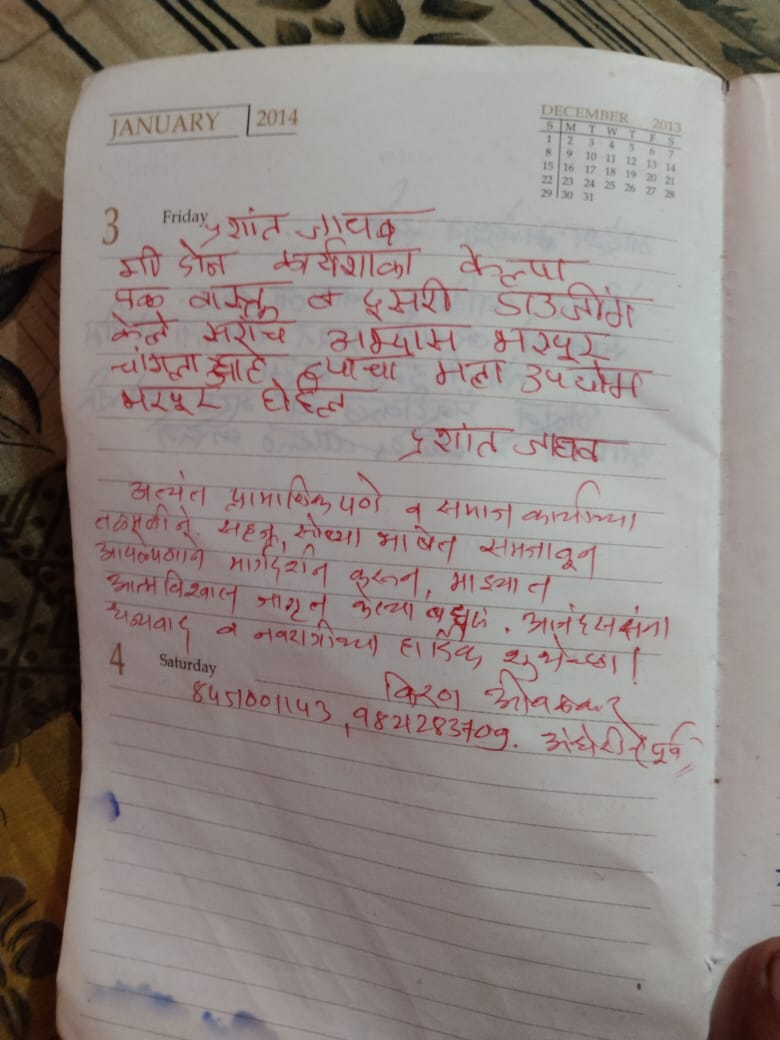 JANUARY 2014
DECEMBER 2013
S M T W T F S
1 2 3 4 5 6 7
8 9 10 11 12 13 14
15 16 17 18 19 20 21
22 23 24 25 26 27 28
29 30 31
3 Friday
प्रशांत जाधव
मी दोन कार्यशाळा केल्या
एक वास्तू व दुसरी डाउजींग
केले सरांच अभ्यास भरपूर
चांगला आहे त्याचा मला उपयोग
भरपूर होईल
प्रशांत जाधव
अत्यंत प्रामाणिकपणे व समाज कार्याच्या
तळमळीने सहज, सोप्या भाषेत समजावून
आपलेपणाने मार्गदर्शन करून, माझ्यात
आत्मविश्वास जागृत केल्या बद्दल. आनंद सरांना
धन्यवाद व नवरात्रीच्या हार्दिक शुभेच्छा!
4 Saturday
किरण
8451001143, 9821283709. अंधेरी पूर्व